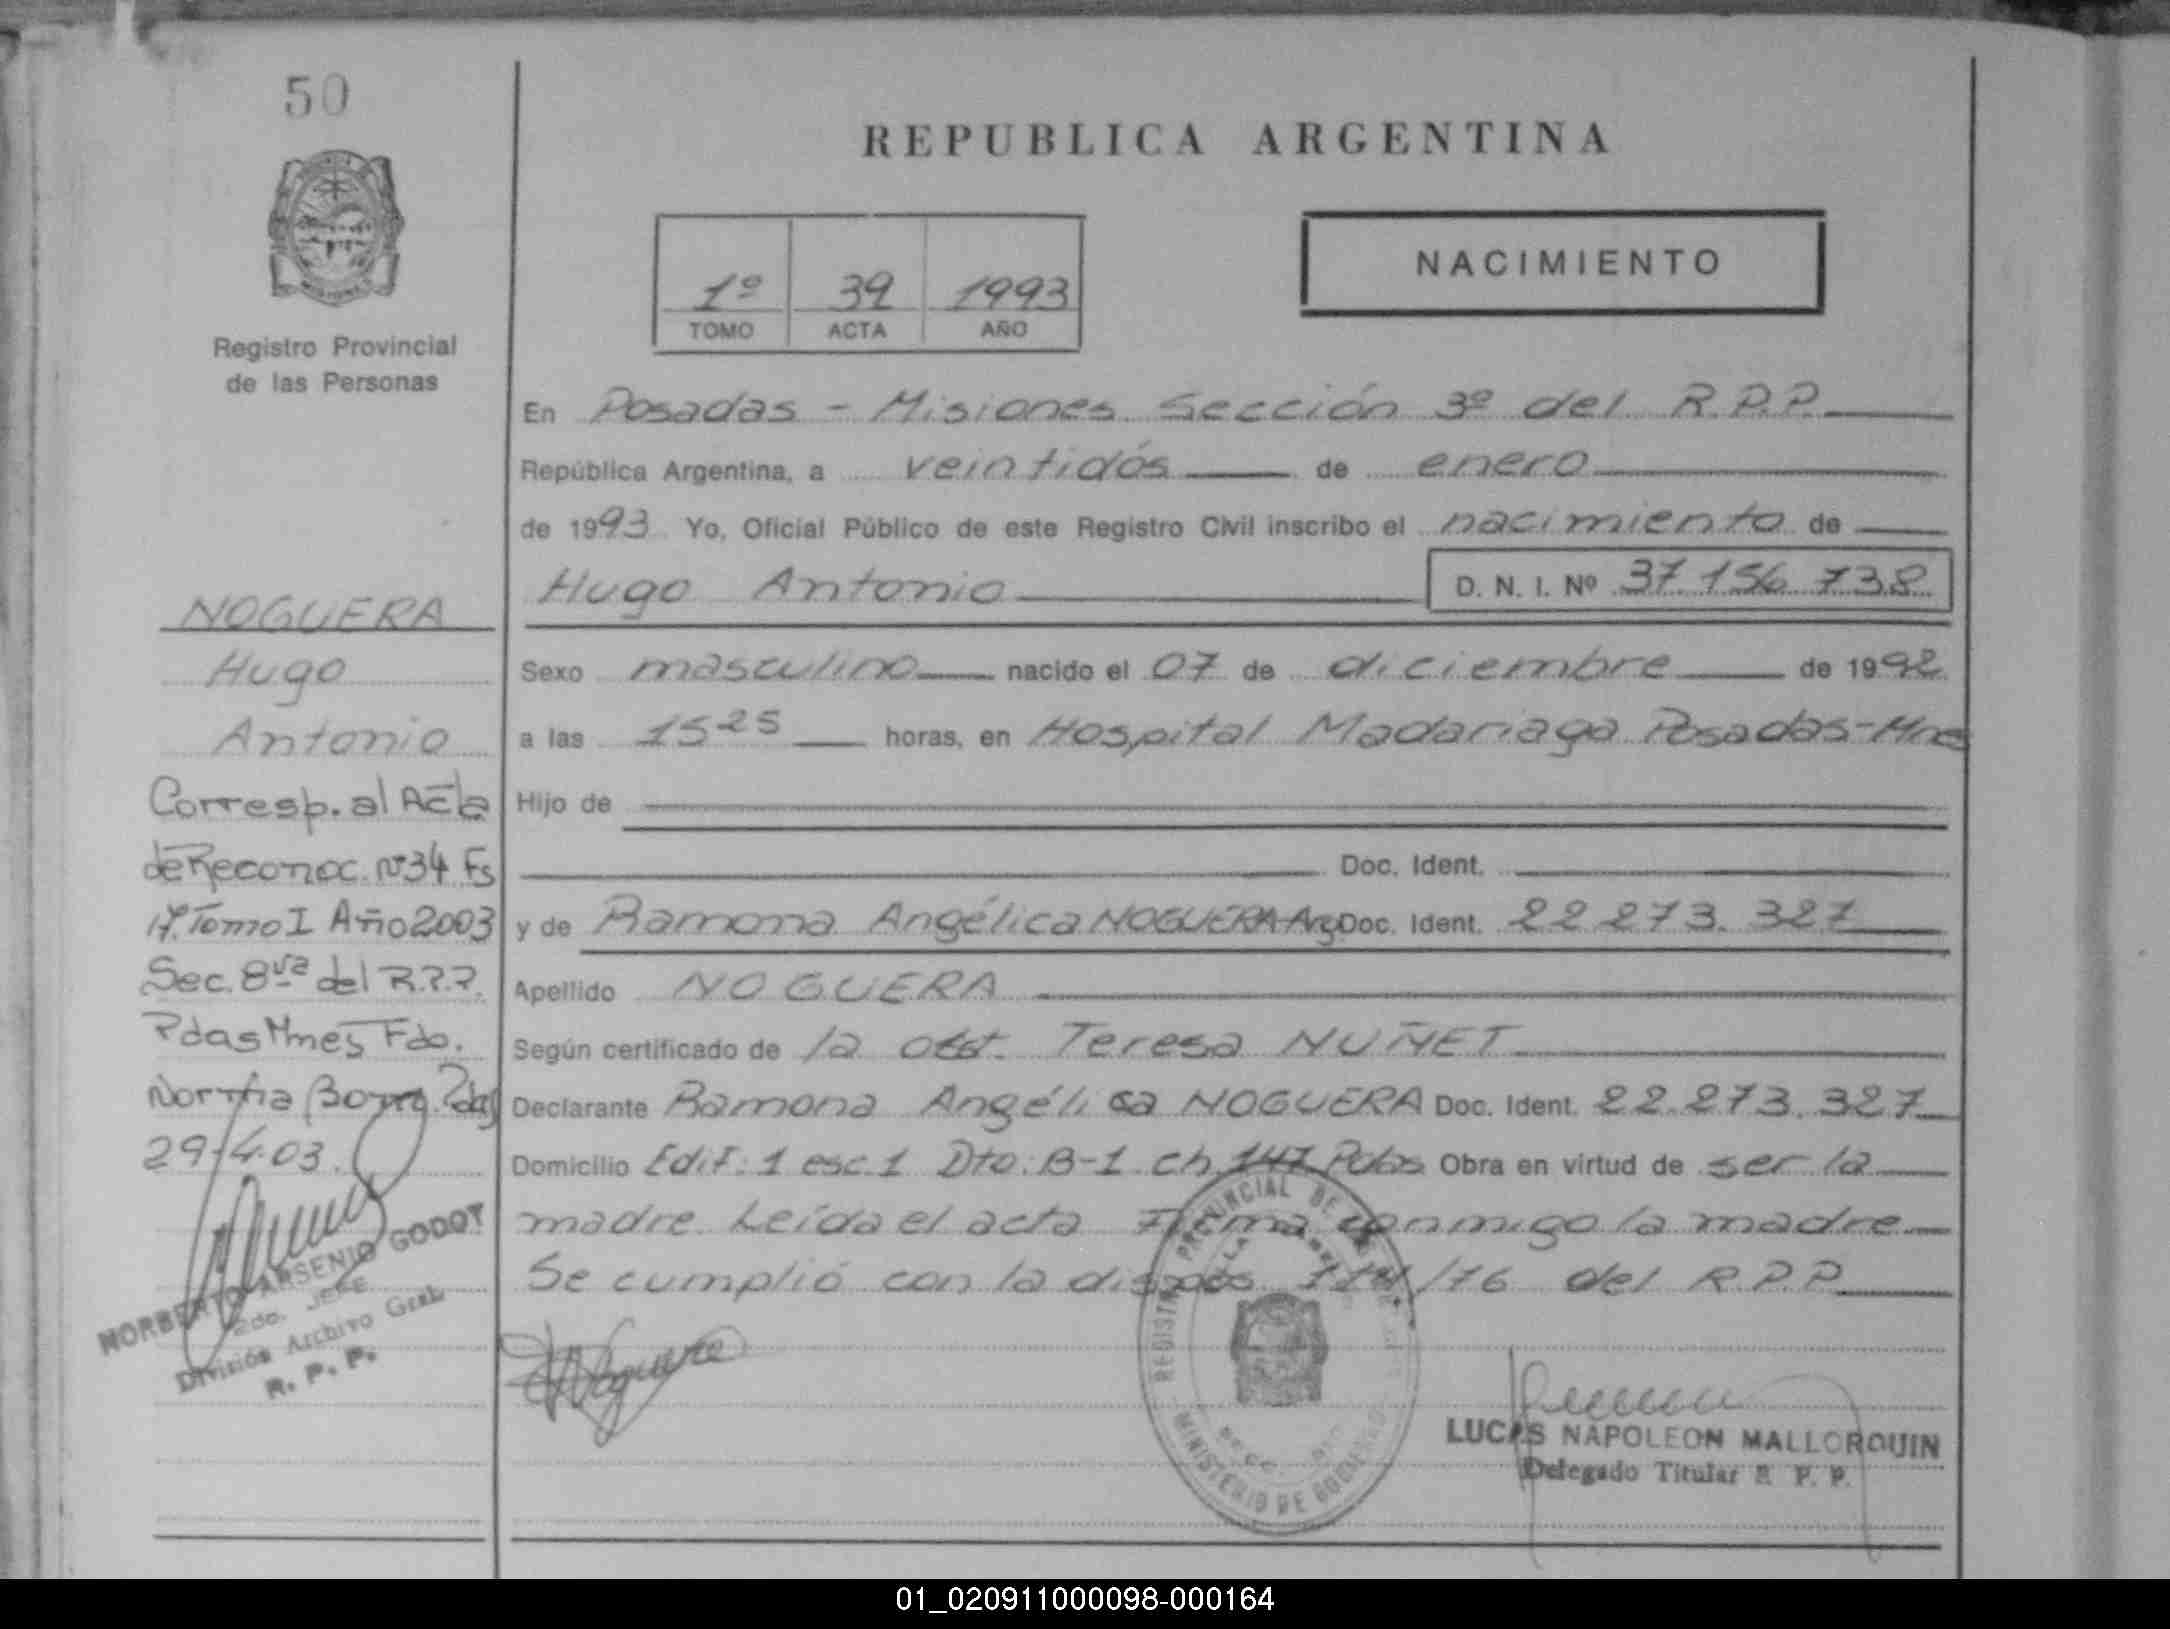 50
REPUBLICA ARGENTINA
NACIMIENTO
1º 39 1993
TOMO ACTA AÑO
Registro Provincial
de las Personas
En Posadas - Misiones Sección 3º del R.P.P.
República Argentina, a veintidós de enero
de 1993 Yo, Oficial Público de este Registro Civil inscribo el nacimiento de
Hugo Antonio D. N. I. Nº 37.156.738
NOGUERA
Hugo
Antonio
Sexo masculino nacido el 07 de diciembre de 1992
a las 15 25 horas, en Hospital Madariaga Posadas-Mnes
Hijo de
Doc. Ident.
y de Ramona Angélica NOGUERA-Arg Doc. Ident. 22.273.327
Apellido NOGUERA
Según certificado de la obst. Teresa NUÑET
Declarante Ramona Angélica NOGUERA Doc. Ident. 22.273.327
Domicilio Edif: 1 esc. 1 Dto: B-1 ch 147 Pdas Obra en virtud de ser la
madre. Leída el acta Firma conmigo la madre
Se cumplió con la dispos /76 del R.P.P.
Corresp. al Acta
de Reconoc. Nº 34 Fs
17. Tomo I Año 2003
Sec. 8va del R.P.P.
Pdas Mnes Fdo.
Norma Pdas
29-4-03.
NORBERTO ARSENIO GODOY
2do. JEFE
División Archivo Gral
R. P. P.
Noguera
REGISTRO PROVINCIAL DE LAS
MINISTERIO DE GOBIERNO
LUCAS NAPOLEON MALLORQUIN
Delegado Titular R. P. P.
01_020911000098-000164